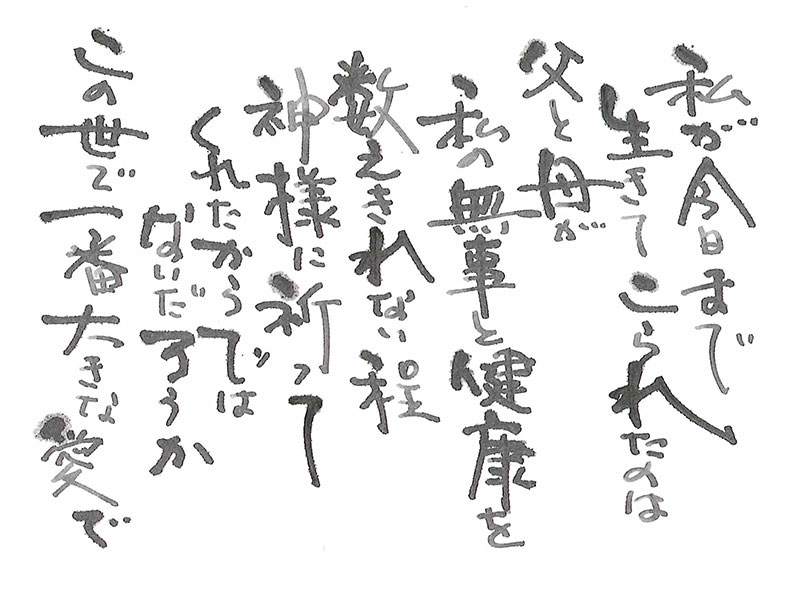 私が今日まで
生きてこられたのは
父と母が
私の無事と健康を
数えきれない程
神様に祈って
くれたからでは
ないだろうか
この世で一番大きな愛で